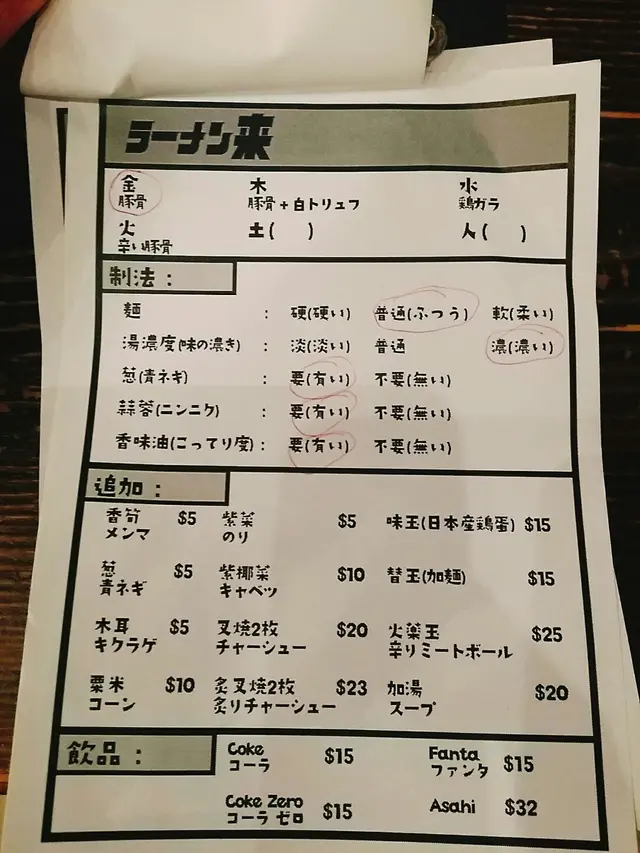 ラーメン来
金 木 水
豚骨 豚骨+白トリュフ 鶏ガラ
火 土( ) 人( )
辛い豚骨
制法：
麺 : 硬(硬い) 普通(ふつう) 軟(柔い)
湯濃度(味の濃き) : 淡(淡い) 普通 濃(濃い)
葱(青ネギ) : 要(有い) 不要(無い)
蒜蓉(ニンニク) : 要(有い) 不要(無い)
香味油(こってり度) : 要(有い) 不要(無い)
追加：
香筍 $5 紫菜 $5 味玉(日本産鶏蛋) $15
メンマ のり
葱 $5 紫椰菜 $10 替玉(加麺) $15
青ネギ キャベツ
木耳 $5 叉焼2枚 $20 火薬玉 $25
キクラゲ チャーシュー 辛りミートボール
粟米 $10 炙叉焼2枚 $23 加湯 $20
コーン 炙りチャーシュー スープ
飲品： Coke $15 Fanta $15
コーラ ファンタ
Coke Zero $15 Asahi $32
コーラ ゼロ